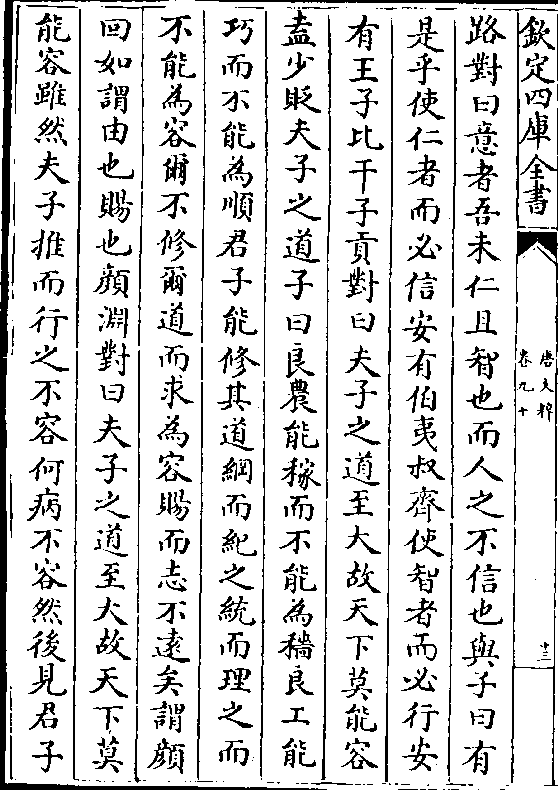 欽定四庫全書
唐文粹
卷九十
十三
路對曰意者吾未仁且智也而人之不信也與子曰有
是乎使仁者而必信安有伯夷叔齊使智者而必行安
有王子比干子貢對曰夫子之道至大故天下莫能容
盍少貶夫子之道子曰良農能稼而不能為穡良工能
巧而不能為順君子能修其道綱而紀之統而理之而
不能為容爾不修爾道而求為容賜而志不遠矣謂顔
回如謂由也賜也顔淵對曰夫子之道至大故天下莫
能容雖然夫子推而行之不容何病不容然後見君子